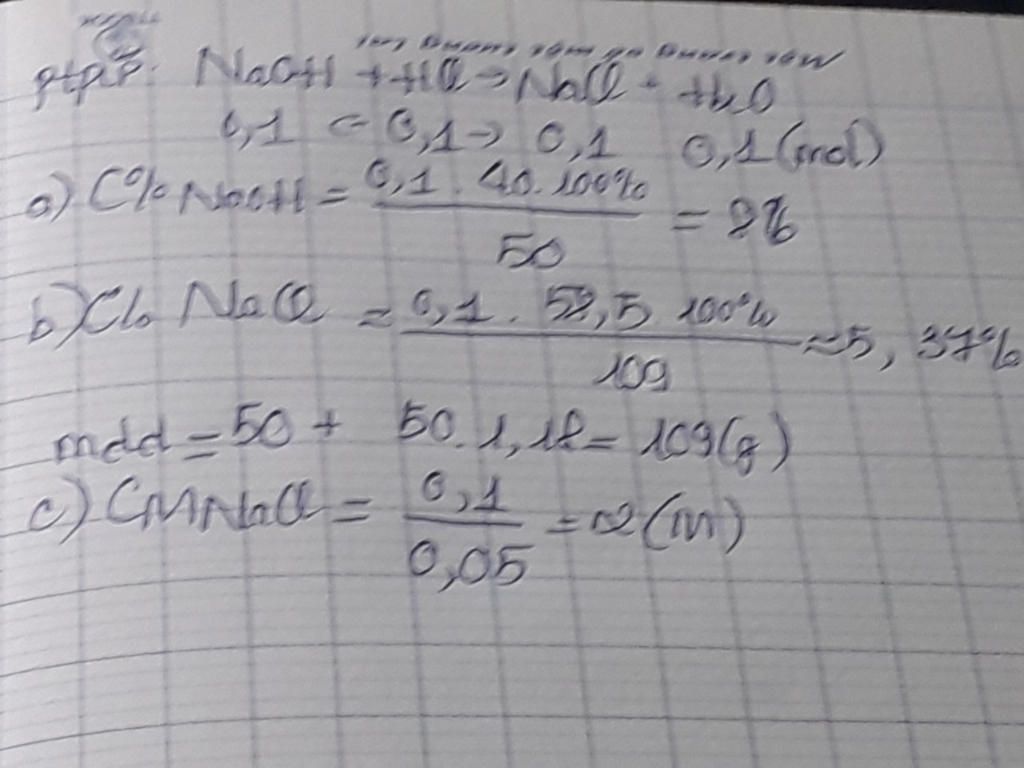 ptpứ: NaOH + HCl → NaCl + H2O
0,1 ← 0,1 → 0,1 0,1 (mol)
a) C% NaOH = 0,1 . 40 . 100% / 50 = 8%
b) C% NaCl = 0,1 . 58,5 . 100% / 109 ≈ 5,37%
mdd = 50 + 50 . 1,18 = 109 (g)
c) CM NaCl = 0,1 / 0,05 = 2 (M)